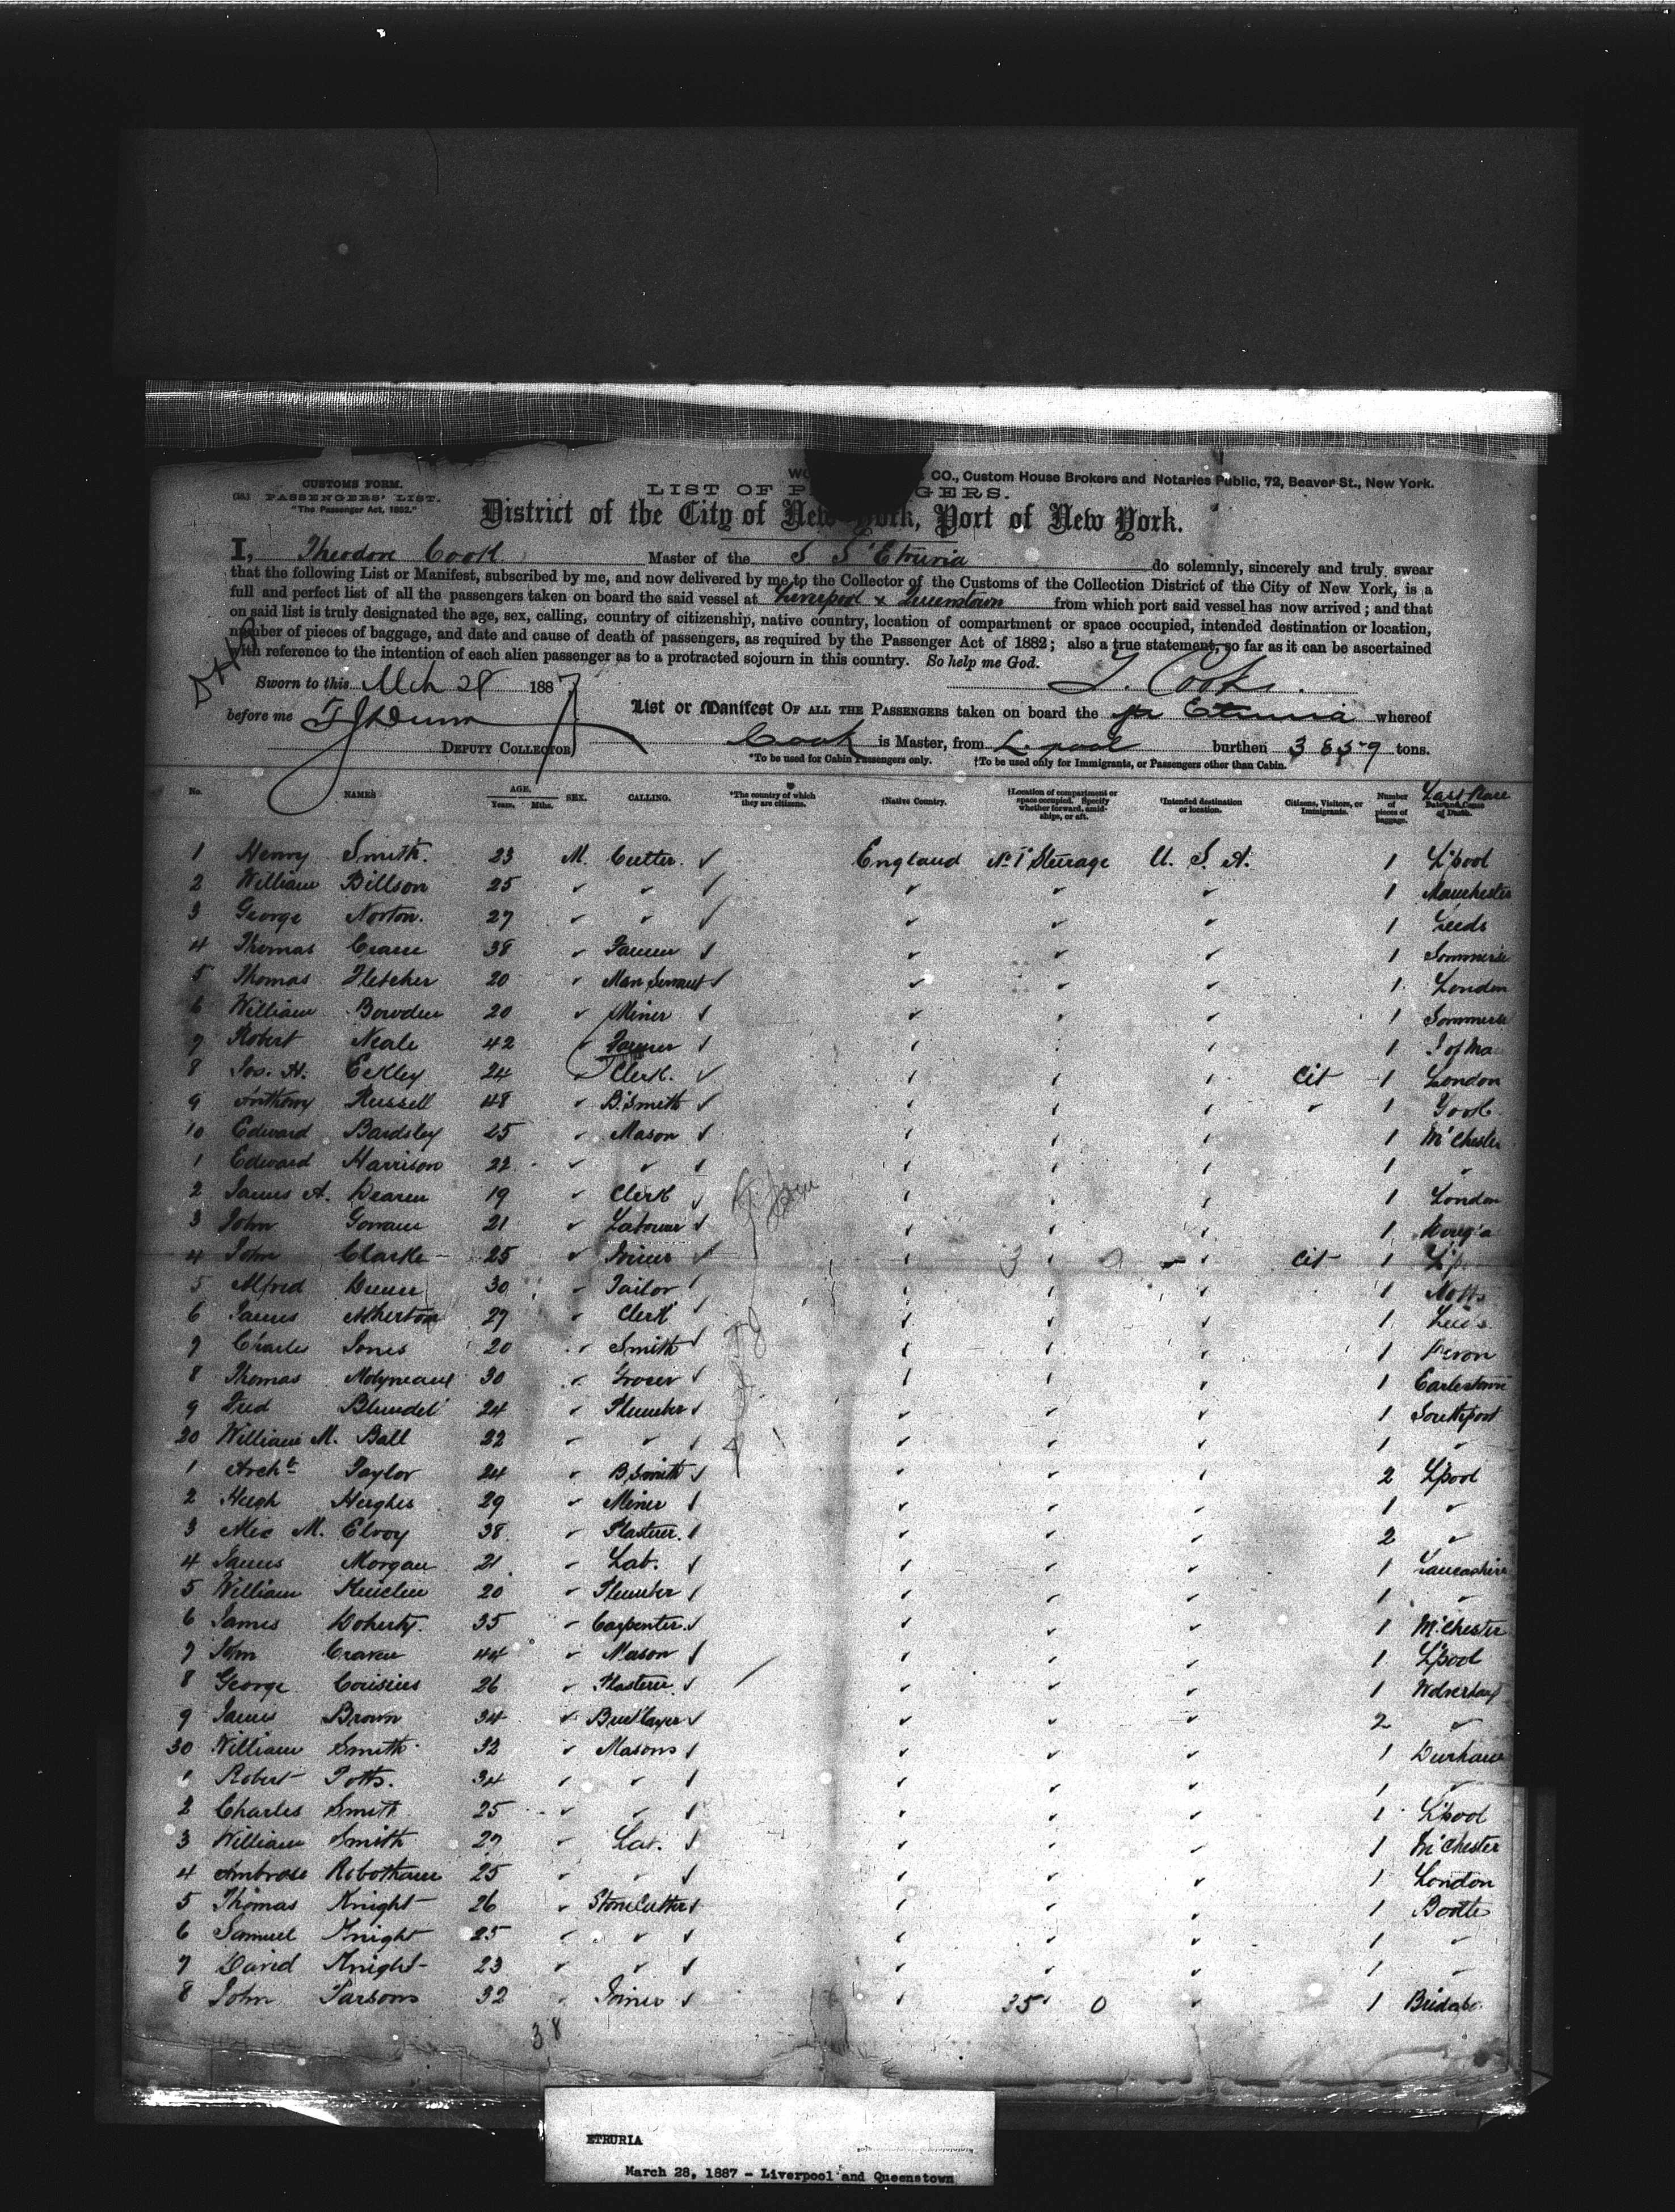 CUSTOMS FORM.
PASSENGERS' LIST.
"The Passenger Act, 1882."
CO., Custom House Brokers and Notaries Public, 72, Beaver St., New York.
LIST OF P GERS.
District of the City of New York, Port of New York.
I, Theodore Cook Master of the S S Etruria do solemnly, sincerely and truly swear
that the following List or Manifest, subscribed by me, and now delivered by me to the Collector of the Customs of the Collection District of the City of New York, is a
full and perfect list of all the passengers taken on board the said vessel at Liverpool & Queenstown from which port said vessel has now arrived; and that
on said list is truly designated the age, sex, calling, country of citizenship, native country, location of compartment or space occupied, intended destination or location,
number of pieces of baggage, and date and cause of death of passengers, as required by the Passenger Act of 1882; also a true statement, so far as it can be ascertained
with reference to the intention of each alien passenger as to a protracted sojourn in this country. So help me God.
Sworn to this Mch 28 1887 T. Cook.
before me DEPUTY COLLECTOR
List or Manifest OF ALL THE PASSENGERS taken on board the Etruria whereof
Cook is Master, from L'pool burthen tons.
*To be used for Cabin Passengers only. †To be used only for Immigrants, or Passengers other than Cabin.
No. NAMES AGE. Years. Mths. SEX. CALLING. *The country of which they are citizens. †Native Country. †Location of compartment or space occupied. Specify whether forward, amidships, or aft. †Intended destination or location. Citizens, Visitors, or Immigrants. Number of pieces of baggage. Last Place Date and Cause of Death.
1 Henry Smith. 23 M. Cutter. England No. 1 Steerage U. S. A. 1 L'pool
2 William Billson 25 1 Manchester
3 George Norton. 27 1 Leeds
4 Thomas 38 1
5 Thomas Fletcher 20 Man Servant 1 London
6 William Bowden 20 Miner 1
7 Robert Neale 42 1 I of Ma
8 Jos. H. Eckley 24 Clerk. Cit 1 London
9 Anthony Russell 48 B. Smith 1
10 Edward Bardsley 25 Mason 1 M'Chester
1 Edward Harrison 22 1
2 James A. 19 Clerk 1 London
3 John 21 Labourer 1
4 John Clarke 25 Cit 1 L'p
5 Alfred 30 Tailor 1 Notts
6 James Atherton 27 Clerk 1
7 Charles Jones 20 Smith 1 Devon
8 Thomas Molyneaux 30 Grocer 1 Earlestown
9 Fred Blundel 24 Plumber 1 Southport
20 William M. Ball 22 1
1 Arch'd Taylor 24 B Smith 2 L'pool
2 Hugh Hughes 29 Miner 1
3 M. Elroy 38 Plasterer. 2
4 James Morgan 21 Lab. 1 Lancashire
5 William 20 Plumber 1
6 James Doherty. 35 Carpenter. 1 M'Chester
7 John Craven 44 Mason 1 L'pool
8 George Cousins 26 Plasterer. 1
9 James Brown 34 Bricklayer 2
30 William Smith 32 Masons 1 Durham
1 Robert Potts. 34 1
2 Charles Smith 25 1 L'pool
3 William Smith 27 Lab. 1 M'Chester
4 Ambrose Robotham 25 1 London
5 Thomas Knight 26 Stone Cutter 1 Bootle
6 Samuel Knight 25 1
7 David Knight 23 1
8 John Parsons 32 Joiner 35 0 1
38
ETRURIA
March 28, 1887 - Liverpool and Queenstown